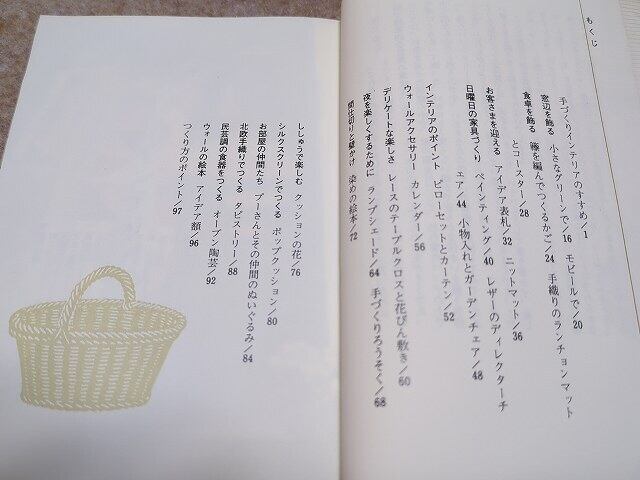 もくじ
手づくりインテリアのすすめ/1
窓辺を飾る 小さなグリーンで/16 モビールで/20
食卓を飾る 籐を編んでつくるかご/24 手織りのランチョンマット
とコースター/28
お客さまを迎える アイデア表札/32 ニットマット/36
日曜日の家具づくり ペインティング/40 レザーのディレクターチ
ェア/44 小物入れとガーデンチェア/48
インテリアのポイント ピローセットとカーテン/52
ウォールアクセサリー カレンダー/56
デリケートな楽しさ レースのテーブルクロスと花びん敷き/60
夜を楽しくするために ランプシェード/64 手づくりろうそく/68
間仕切りと壁かけ 染めの絵本/72
ししゅうで楽しむ クッションの花/76
シルクスクリーンでつくる ポップクッション/80
お部屋の仲間たち プーさんとその仲間のぬいぐるみ/84
北欧手織りでつくる タピストリー/88
民芸調の食器をつくる オーブン陶芸/92
ウォールの絵本 アイデア額/96
つくり方のポイント/97